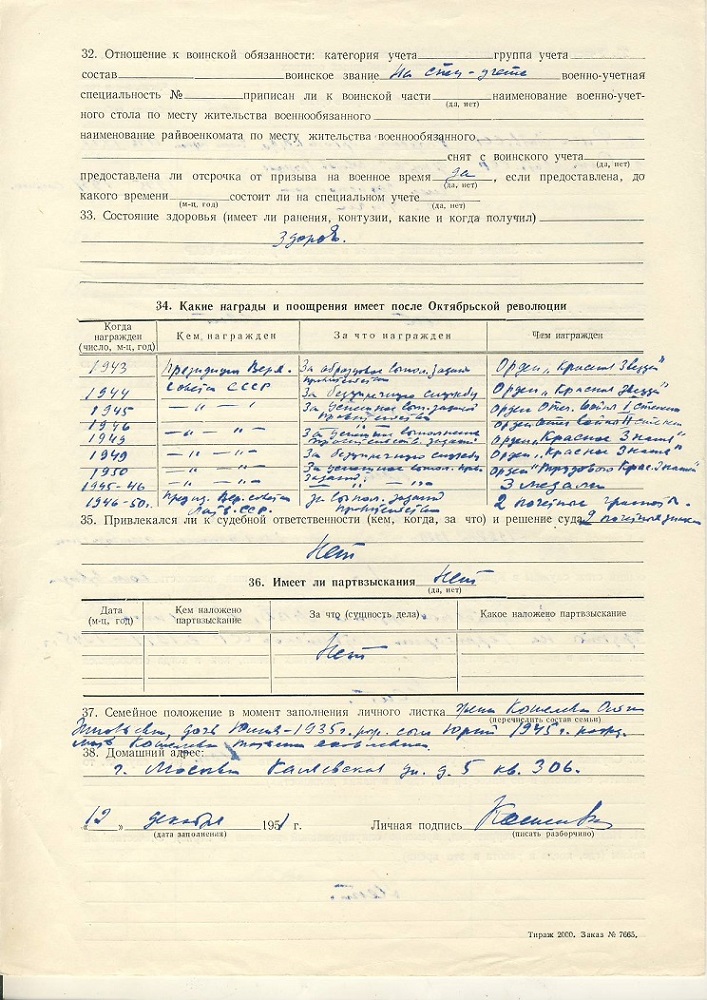 32. Отношение к воинской обязанности: категория учета группа учета
состав воинское звание На спец-учете военно-учетная
специальность № приписан ли к воинской части (да, нет) наименование военно-учет-
ного стола по месту жительства военнообязанного
наименование райвоенкомата по месту жительства военнообязанного.
снят с воинского учета (да, нет)
предоставлена ли отсрочка от призыва на военное время да (да, нет), если предоставлена, до
какого времени (м-ц, год) состоит ли на специальном учете (да, нет)
33. Состояние здоровья (имеет ли ранения, контузии, какие и когда получил)
Здоров.
34. Какие награды и поощрения имеет после Октябрьской революции
Когда награжден (число, м-ц, год) Кем награжден За что награжден Чем награжден
1943 Президиум Верх. За образцовое выпол. задания правительства Орден „Красная Звезда"
1944 Совета СССР За безупречную службу Орден „Красная Звезда"
1945 — " — За успешное вып. заданий правительства Орден Отеч. войны I степени
1946 орден Отеч. войны II степени
1949 — " — " — За успешное выполнение правительств. заданий орден „Красное Знамя"
1949 — " — " — За безупречную службу Орден „Красное Знамя"
1950 — " — " — За успешное выпол. прав. Орден "Трудового Крас. Знамени"
1945-46 — " — " — задания " — " 3 медали
1946-50г. Презид. Вер. совета Латв. ССР. за выпол. заданий правительства 2 почетные грамоты.
35. Привлекался ли к судебной ответственности (кем, когда, за что) и решение суда 2 почетных знака
Нет
36. Имеет ли партвзыскания Нет
(да, нет)
Дата (м-ц, год) Кем наложено партвзыскание За что (сущность дела) Какое наложено партвзыскание
Нет
37. Семейное положение в момент заполнения личного листка жена Кошелева
(перечислить состав семьи)
дочь 1935г. рож. сын Юрий 1945 г. рожд.
мать Кошелева
38. Домашний адрес:
г. Москва Каляевская ул. д. 5 кв. 306.
„12" декабря 1951 г. Личная подпись
(дата заполнения) (писать разборчиво)
Тираж 2000. Заказ № 7665.